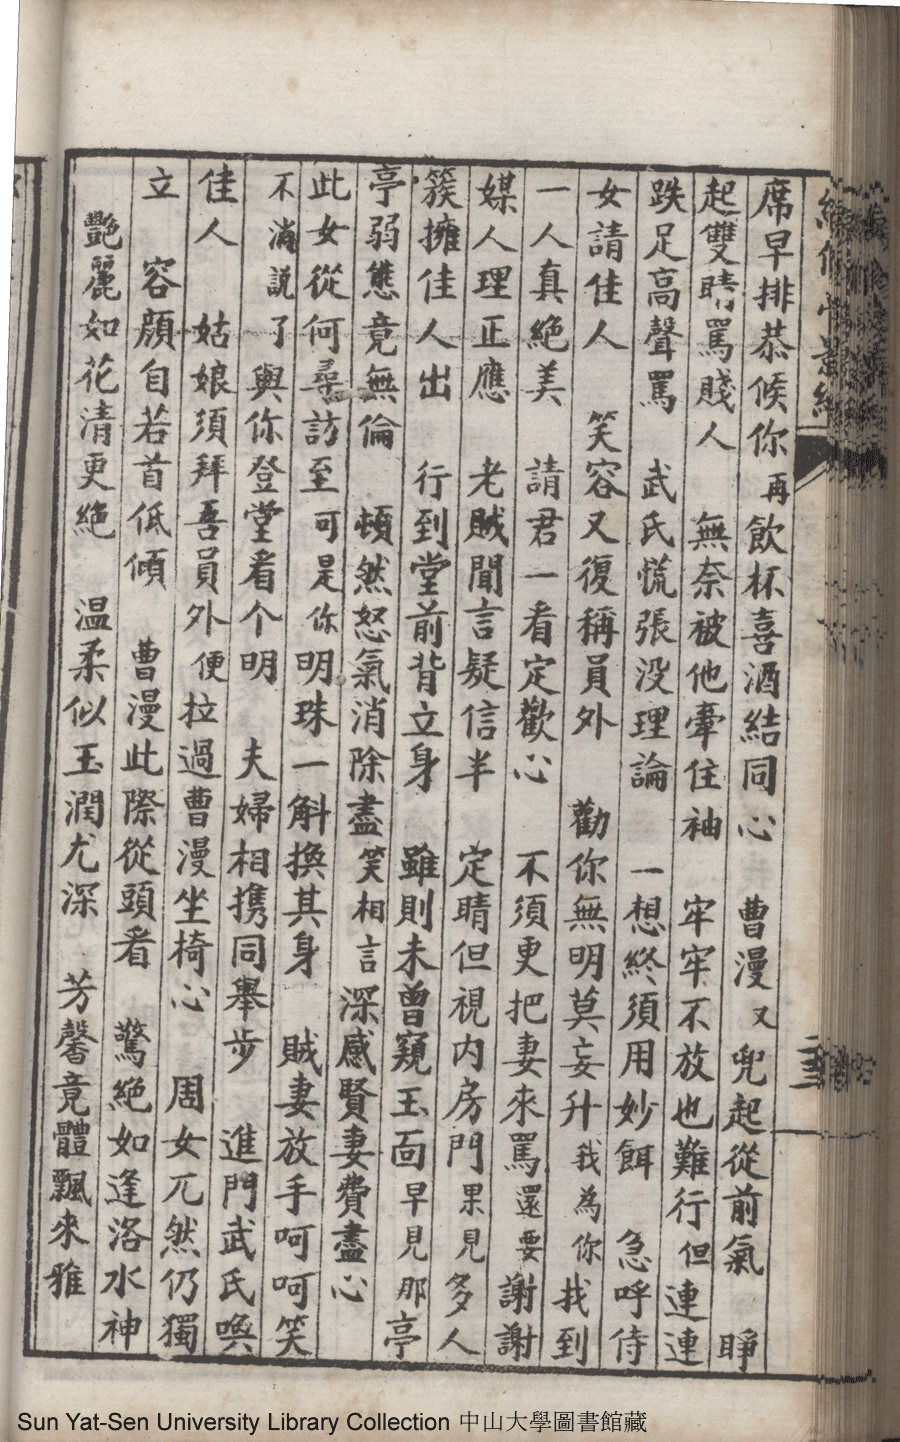 席早排恭候你再飲杯喜酒結同心　曹漫又兜起從前氣　睜
起雙睛罵賤人　無奈被他牽住袖　牢牢不放也難行但連連
跌足高聲罵　武氏慌張没理論　一想終須用妙餌　急呼侍
女請佳人　笑容又復稱員外　勸你無明莫妄升我為你找到
一人真絶美　請君一看定歡心　不須更把妻來罵還要謝謝
媒人理正應　老賊聞言疑信半　定睛但視内房門果見多人
簇擁佳人出　行到堂前背立身　雖則未曾窺玉面早見那亭
亭弱態竟無倫　頓然怒氣消除盡笑相言深感賢妻費盡心
此女從何尋訪至可是你明珠一斛換其身　賊妻放手呵呵笑
不消説了與你登堂看个明　夫婦相携同舉步　進門武氏喚
佳人　姑娘須拜吾員外便拉過曹漫坐椅心　周女兀然仍獨
立　容顔自若首低傾　曹漫此際從頭看　驚絶如逢洛水神
艷麗如花清更絶　温柔似玉潤尤深　芳馨竟體飄來雅
Sun Yat-Sen University Library Collection 中山大學圖書館藏